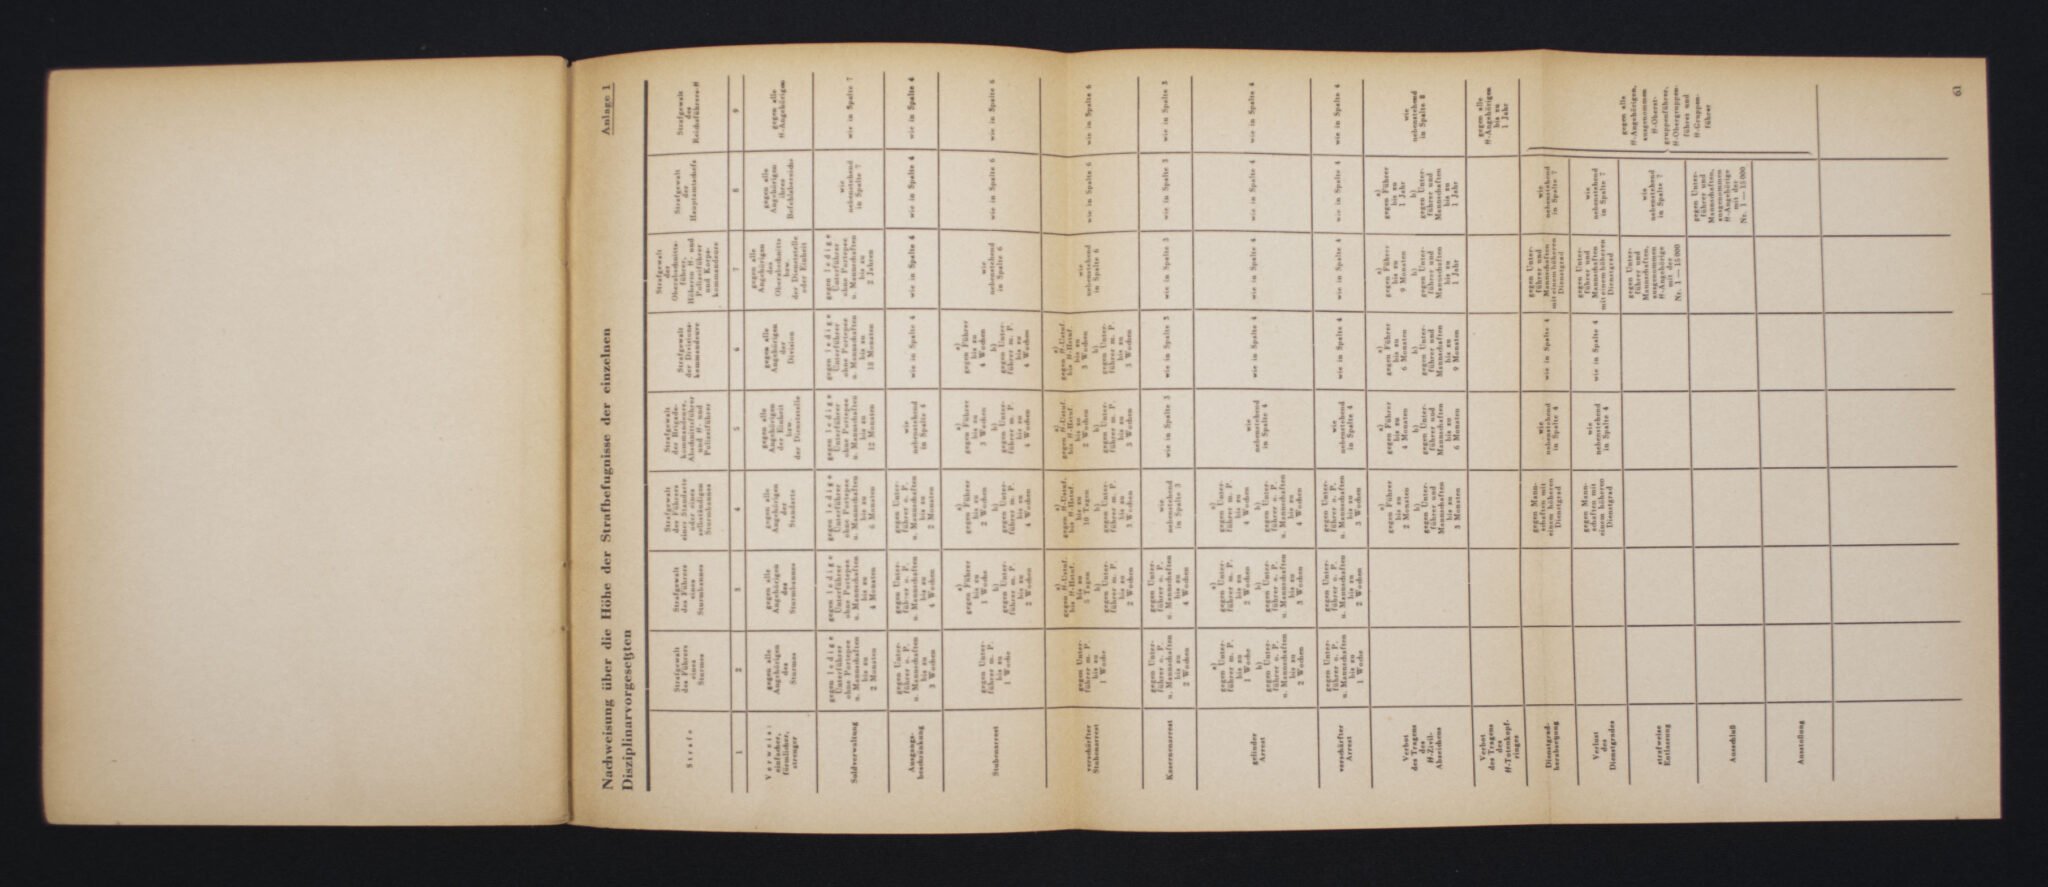 Anlage 1
Nachweisung über die Höhe der Strafbefugnisse der einzelnen
Disziplinarvorgesetzten
Strafe
Strafgewalt
des Führers
eines
Sturmes
Strafgewalt
des Führers
eines
Sturmbannes
Strafgewalt
des Führers
einer Standarte
oder eines
selbständigen
Sturmbannes
Strafgewalt
der Brigade-
kommandeure,
Abschnittsführer
und ᛋᛋ- und
Polizeiführer
Strafgewalt
der Divisions-
kommandeure
Strafgewalt
der
Oberabschnitts-
führer,
Höheren ᛋᛋ- und
Polizeiführer
und Korps-
kommandeure
Strafgewalt
der
Hauptamtschefs
Strafgewalt
des
Reichsführers-ᛋᛋ
1
2
3
4
5
6
7
8
9
Verweis:
einfacher,
förmlicher,
strenger
gegen alle
Angehörigen
des
Sturmes
gegen alle
Angehörigen
des
Sturmbannes
gegen alle
Angehörigen
der
Standarte
gegen alle
Angehörigen
der Einheit
bzw.
der Dienststelle
gegen alle
Angehörigen
der
Division
gegen alle
Angehörigen
des
Oberabschnitts
bzw.
der Dienststelle
oder Einheit
gegen alle
Angehörigen
ihres
Befehlsbereichs
gegen alle
ᛋᛋ-Angehörigen
Soldverwaltung
gegen ledige
Unterführer
ohne Portepee
u. Mannschaften
bis zu
2 Monaten
gegen ledige
Unterführer
ohne Portepee
u. Mannschaften
bis zu
4 Monaten
gegen ledige
Unterführer
ohne Portepee
u. Mannschaften
bis zu
6 Monaten
gegen ledige
Unterführer
ohne Portepee
u. Mannschaften
bis zu
12 Monaten
gegen ledige
Unterführer
ohne Portepee
u. Mannschaften
bis zu
18 Monaten
gegen ledige
Unterführer
ohne Portepee
u. Mannschaften
bis zu
2 Jahren
wie
nebenstehend
in Spalte 7
wie in Spalte 7
Ausgangs-
beschränkung
gegen Unter-
führer o. P.
u. Mannschaften
bis zu
3 Wochen
gegen Unter-
führer o. P.
u. Mannschaften
bis zu
4 Wochen
gegen Unter-
führer o. P.
u. Mannschaften
bis zu
2 Monaten
wie
nebenstehend
in Spalte 4
wie in Spalte 4
wie in Spalte 4
wie in Spalte 4
wie in Spalte 4
Stubenarrest
gegen Unter-
führer m. P.
bis zu
1 Woche
a)
gegen Führer
bis zu
1 Woche
b)
gegen Unter-
führer m. P.
bis zu
2 Wochen
a)
gegen Führer
bis zu
2 Wochen
b)
gegen Unter-
führer m. P.
bis zu
4 Wochen
a)
gegen Führer
bis zu
3 Wochen
b)
gegen Unter-
führer m. P.
bis zu
4 Wochen
a)
gegen Führer
bis zu
4 Wochen
b)
gegen Unter-
führer m. P.
bis zu
4 Wochen
wie
nebenstehend
in Spalte 6
wie in Spalte 6
wie in Spalte 6
verschärfter
Stubenarrest
gegen Unter-
führer m. P.
bis zu
1 Woche
a)
gegen ᛋᛋ-Ustuf.
bis ᛋᛋ-Hstuf.
bis zu
5 Tagen
b)
gegen Unter-
führer m. P.
bis zu
2 Wochen
a)
gegen ᛋᛋ-Ustuf.
bis ᛋᛋ-Hstuf.
bis zu
10 Tagen
b)
gegen Unter-
führer m. P.
bis zu
3 Wochen
a)
gegen ᛋᛋ-Ustuf.
bis ᛋᛋ-Hstuf.
bis zu
2 Wochen
b)
gegen Unter-
führer m. P.
bis zu
3 Wochen
a)
gegen ᛋᛋ-Ustuf.
bis ᛋᛋ-Hstuf.
bis zu
3 Wochen
b)
gegen Unter-
führer m. P.
bis zu
3 Wochen
wie
nebenstehend
in Spalte 6
wie in Spalte 6
wie in Spalte 6
Kasernenarrest
gegen Unter-
führer o. P.
u. Mannschaften
bis zu
2 Wochen
gegen Unter-
führer o. P.
u. Mannschaften
bis zu
4 Wochen
wie
nebenstehend
in Spalte 3
wie in Spalte 3
wie in Spalte 3
wie in Spalte 3
wie in Spalte 3
wie in Spalte 3
gelinder
Arrest
a)
gegen Unter-
führer m. P.
bis zu
1 Woche
b)
gegen Unter-
führer o. P.
u. Mannschaften
bis zu
2 Wochen
a)
gegen Unter-
führer m. P.
bis zu
2 Wochen
b)
gegen Unter-
führer o. P.
u. Mannschaften
bis zu
3 Wochen
a)
gegen Unter-
führer m. P.
bis zu
4 Wochen
b)
gegen Unter-
führer o. P.
u. Mannschaften
bis zu
4 Wochen
wie
nebenstehend
in Spalte 4
wie in Spalte 4
wie in Spalte 4
wie in Spalte 4
wie in Spalte 4
verschärfter
Arrest
gegen Unter-
führer o. P.
u. Mannschaften
bis zu
1 Woche
gegen Unter-
führer o. P.
u. Mannschaften
bis zu
2 Wochen
gegen Unter-
führer o. P.
u. Mannschaften
bis zu
3 Wochen
wie
nebenstehend
in Spalte 4
wie in Spalte 4
wie in Spalte 4
wie in Spalte 4
wie in Spalte 4
Verbot
des Tragens
des
ᛋᛋ-Zivil-
Abzeichens
a)
gegen Führer
bis zu
2 Monaten
b)
gegen Unter-
führer und
Mannschaften
bis zu
3 Monaten
a)
gegen Führer
bis zu
4 Monaten
b)
gegen Unter-
führer und
Mannschaften
bis zu
6 Monaten
a)
gegen Führer
bis zu
6 Monaten
b)
gegen Unter-
führer und
Mannschaften
bis zu
9 Monaten
a)
gegen Führer
bis zu
9 Monaten
b)
gegen Unter-
führer und
Mannschaften
bis zu
1 Jahr
a)
gegen Führer
bis zu
1 Jahr
b)
gegen Unter-
führer und
Mannschaften
bis zu
1 Jahr
wie
nebenstehend
in Spalte 8
Verbot
des Tragens
des
ᛋᛋ-Totenkopf-
ringes
gegen alle
ᛋᛋ-Angehörigen
bis zu
1 Jahr
Dienstgrad-
herabsetzung
gegen Mann-
schaften mit
einem höheren
Dienstgrad
wie
nebenstehend
in Spalte 4
wie in Spalte 4
gegen Unter-
führer und
Mannschaften
mit einem höheren
Dienstgrad
wie
nebenstehend
in Spalte 7
gegen alle
ᛋᛋ-Angehörigen,
ausgenommen
ᛋᛋ-Oberst-
gruppenführer,
ᛋᛋ-Obergruppen-
führer und
ᛋᛋ-Gruppen-
führer
Verlust
des
Dienstgrades
gegen Mann-
schaften mit
einem höheren
Dienstgrad
wie
nebenstehend
in Spalte 4
wie in Spalte 4
gegen Unter-
führer und
Mannschaften
mit einem höheren
Dienstgrad
wie
nebenstehend
in Spalte 7
strafweise
Entlassung
gegen Unter-
führer und
Mannschaften,
ausgenommen
ᛋᛋ-Angehörige
mit der
Nr. 1 — 15 000
wie
nebenstehend
in Spalte 7
Ausschluß
gegen Unter-
führer und
Mannschaften,
ausgenommen
ᛋᛋ-Angehörige
mit der
Nr. 1 — 15 000
Ausstoßung
61